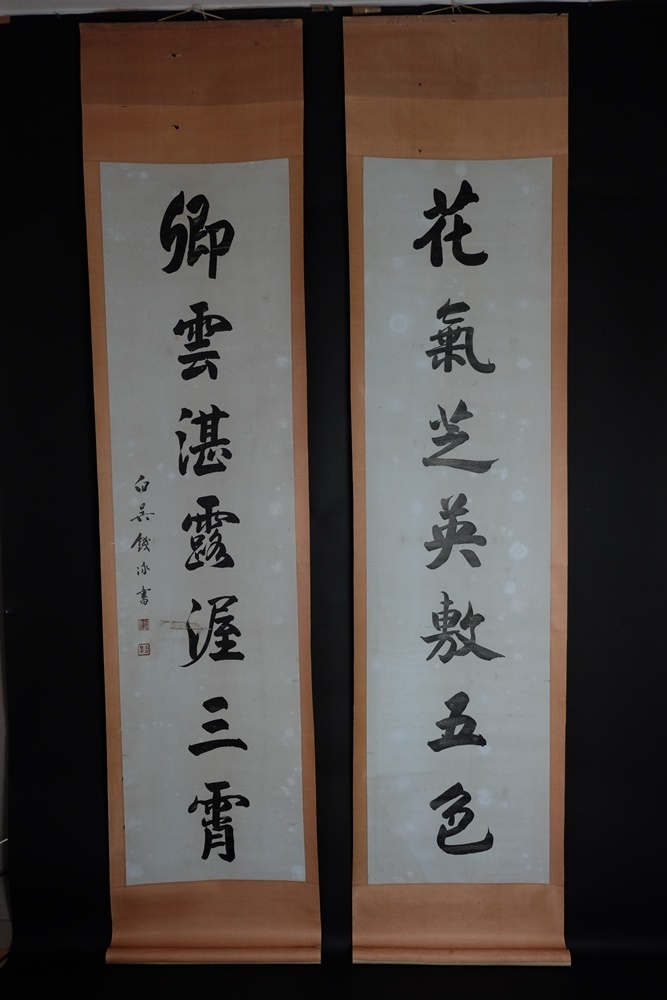 花氣芝英敷五色
卿雲湛露渥三霄
白吳錢泳書